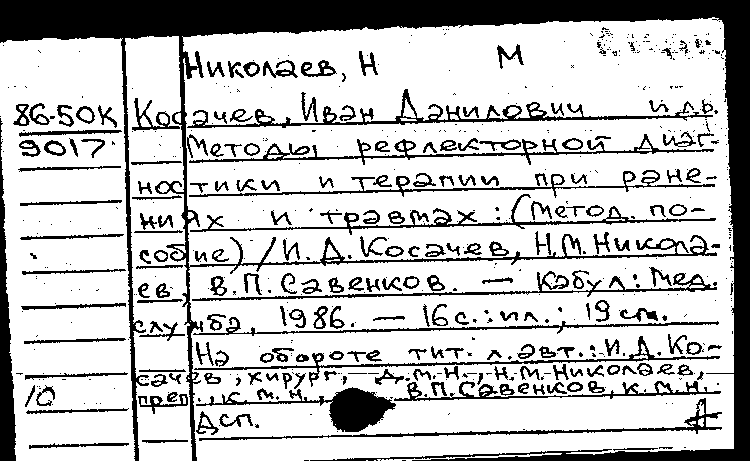 Николаев, Н М
86-50К Косачев, Иван Данилович и др.
9017 Методы рефлекторной диаг-
ностики и терапии при ране-
ниях и травмах: (Метод. по-
собие) / И. Д. Косачев, Н.М. Никола-
ев, В.П. Савенков. — Кабул: Мед.
служба, 1986. — 16 с.: ил.; 19 см.
На обороте тит. л. авт.: И.Д. Ко-
сачев, хирург, д.м.н., Н.М. Николаев,
10 преп., к.м.н., В.П. Савенков, к.м.н.
Дсп. А